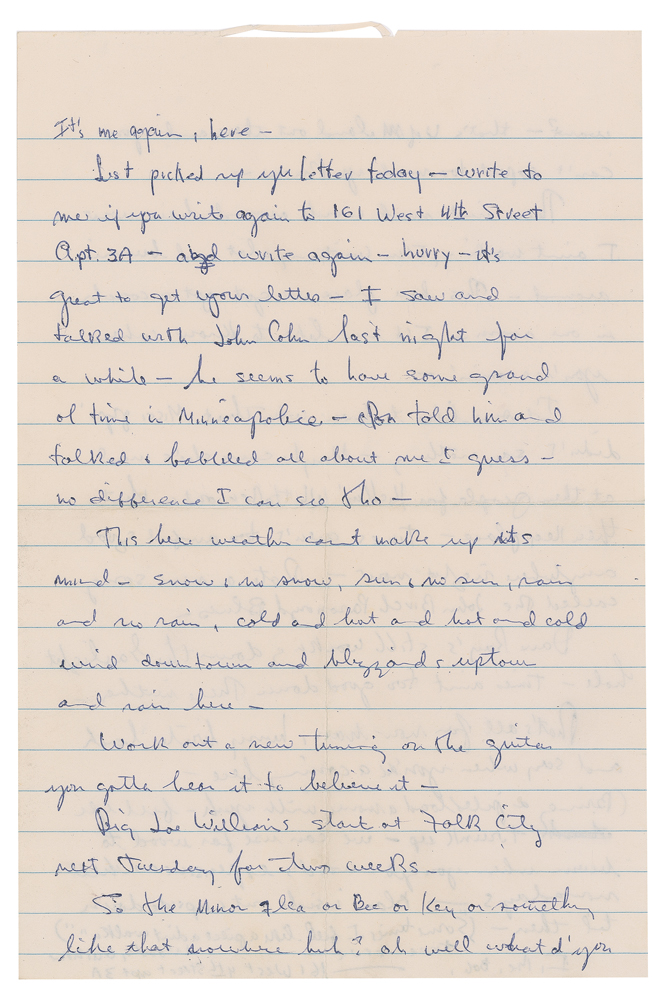 It's me again, here –
Just picked up yr letter today – write to
me if you write again to 161 West 4th Street
Apt. 3A – and write again – hurry – it's
great to get your letter – I saw and
talked with John Cohn last night for
a while – he seems to have some grand
ol time in Minneapolice – told him and
talked & babbled all about me I guess –
no difference I can see tho –
This here weather can't make up its
mind – snow & no snow, sun & no sun, rain
and no rain, cold and hot and hot and cold
wind downtown and blizzards uptown
and rain here –
Work out a new tuning on the guitar
you gotta hear it to believe it –
Big Joe Williams start at Folk City
next Tuesday for two weeks –
So the Minor Flea or Bee or Key or something
like that nowhere huh? oh well what d'you